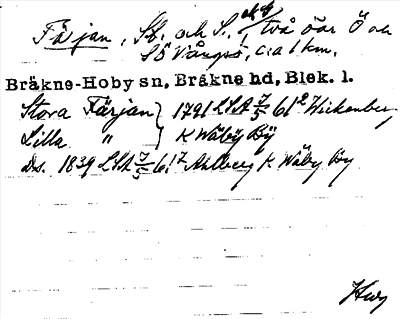 Färjan, St. och L., två öar Ö och
SÖ Vångsö, c:a 1 km.
Bräkne-Hoby sn, Bräkne hd, Blek. l.
Stora Färjan } 1791 LSA 7/5 61² Wickenberg
Lilla " } K Wäby By
Ds. 1839 LSA 7/5 61⁷ Ahlberg K Wäby By